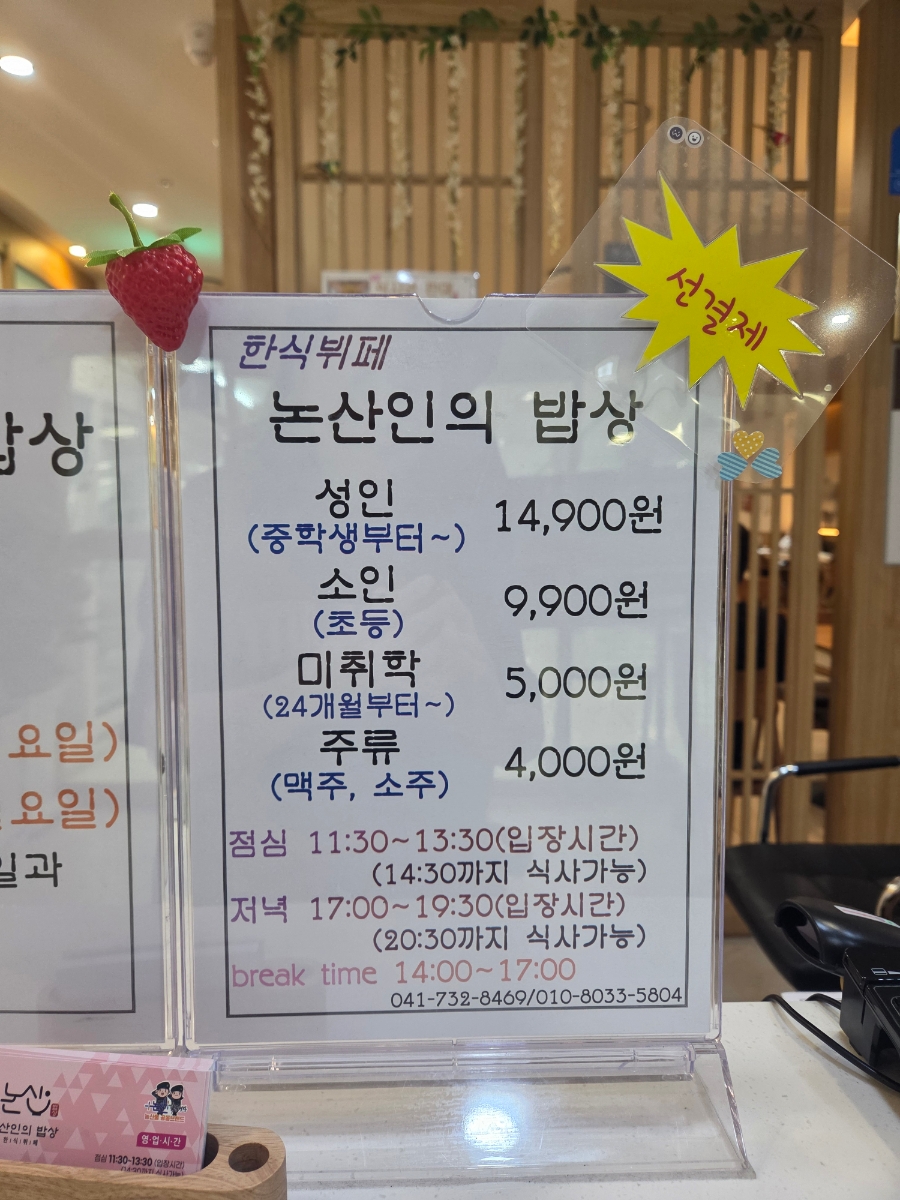 선결제
한식뷔페
논산인의 밥상
성인 14,900원
(중학생부터~)
소인 9,900원
(초등)
미취학 5,000원
(24개월부터~)
주류 4,000원
(맥주, 소주)
점심 11:30~13:30(입장시간)
(14:30까지 식사가능)
저녁 17:00~19:30(입장시간)
(20:30까지 식사가능)
break time 14:00~17:00
041-732-8469/010-8033-5804
밥상
요일)
요일)
일과
논산
산인의 밥상
한식뷔페
영·업·시·간
점심 11:30-13:30 (입장시간)